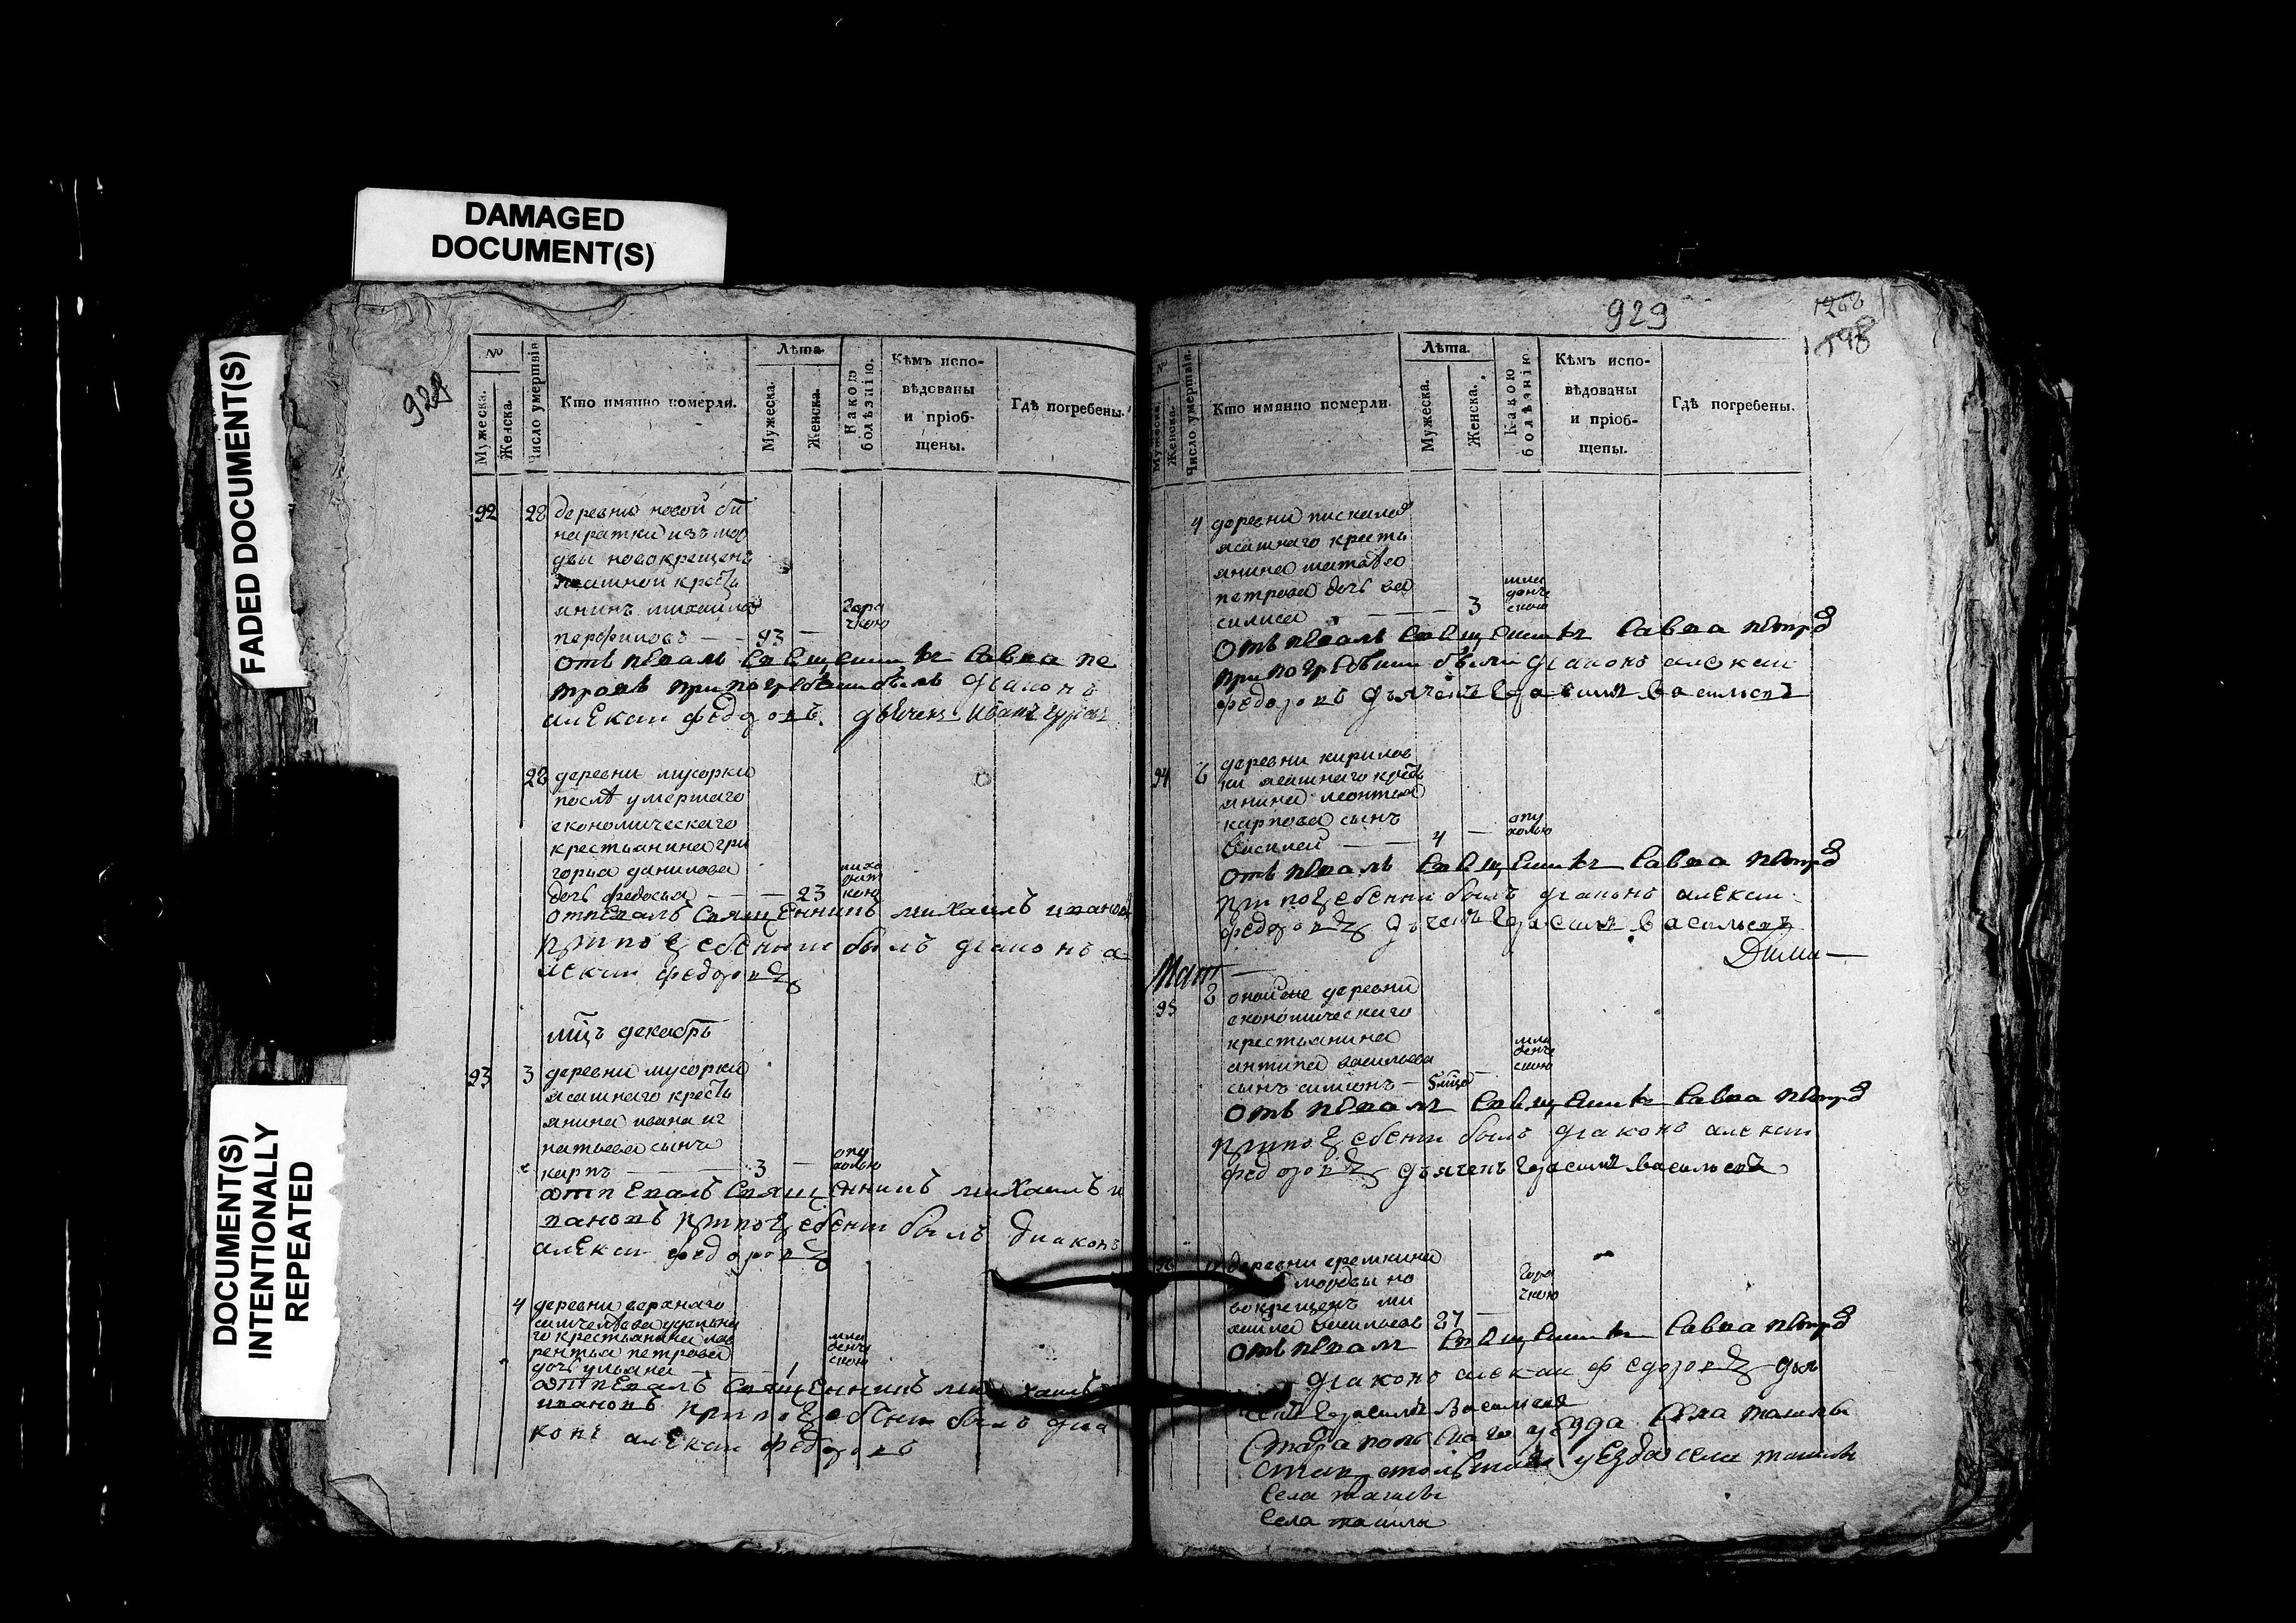 DAMAGED
DOCUMENT(S)
FADED DOCUMENT(S)
DOCUMENT(S)
INTENTIONALLY
REPEATED
924
№
Мужеска.
Женска.
Число умертвія
Кто имянно померли.
Лѣта
Мужеска.
Женска.
Какою
болѣзнію.
Кѣмъ испо-
вѣдованы
и пріоб-
щены.
Гдѣ погребены.
92 28 деревни новой би
наратки изъ мор
двы новокрещенъ
ясашной кресть
янинъ михайло
перфиловъ — 93 — горя
чкою
отъпѣвалъ священникъ Савва пе
тровъ при погребении былъ диаконъ
алексаи федоровъ. дьячекъ Иванъ
28 деревни мусорки
послѣ умершаго
економическаго
крестьянина гри
горья данилова
дочь федосья — — 23
отпевалъ священникъ михаилъ иванов
при погребении былъ диаконъ а
лексаи федоровъ
мцъ декабрь
93 3 деревни мусорки
ясашнаго кресть
янина ивана иг
натьева сынъ
карпъ — 3 — опу
холью
отпевалъ священникъ михаилъ и
вановъ при погребени былъ диаконъ
алексаи федоровъ
4 деревни верхняго
удельна
го крестьянина лав
рентья петрова
дочь ульяна — 1 мла
денче
скою
отпевалъ священникъ михаилъ
ивановъ при погребени былъ диа
конъ алексаи федоровъ
929
1268
№
Мужеска.
Женска.
Число умертвія.
Кто имянно померли.
Лѣта.
Мужеска.
Женска.
Какою
болѣзнію
Кѣмъ испо-
вѣдованы
и пріоб-
щены.
Гдѣ погребены.
4 деревни пискалов
ясашнаго кресть
янина матвѣю
петрова дочь ва
силиса — 3 мла
денче
скою
отъпѣвалъ священикъ Савва петров
при погребении были диаконъ алексаи
федоровъ дьячекъ Герасимъ васильевъ
94 6 деревни кирилов
ки ясашнаго кресть
янина леонтья
карпова сынъ
Василей — 4 — опу
холью
отъпѣвалъ священикъ Савва петров
при погребении былъ диаконъ алексаи
федоровъ дьячекъ Герасимъ васильевъ
95 8 оной же деревни
економическаго
крестьянина
антипа васильева
сынъ симионъ — 5 мцов мла
денче
скою
отъпѣвалъ священикъ Савва петров
при погребени былъ диаконъ алексаи
федоровъ дьячекъ Герасимъ васильевъ
96 деревни еремкина
мордвы но
вокрещенъ ми
хайла васильевъ 27 — горя
чкою
отъпѣвалъ священикъ Савва петров
диаконъ алексаи федоровъ дья
чекъ Герасимъ Васильевъ
Ставропольскаго уезда Села ташлы
уезда села ташлы
Села ташлы
Села ташлы